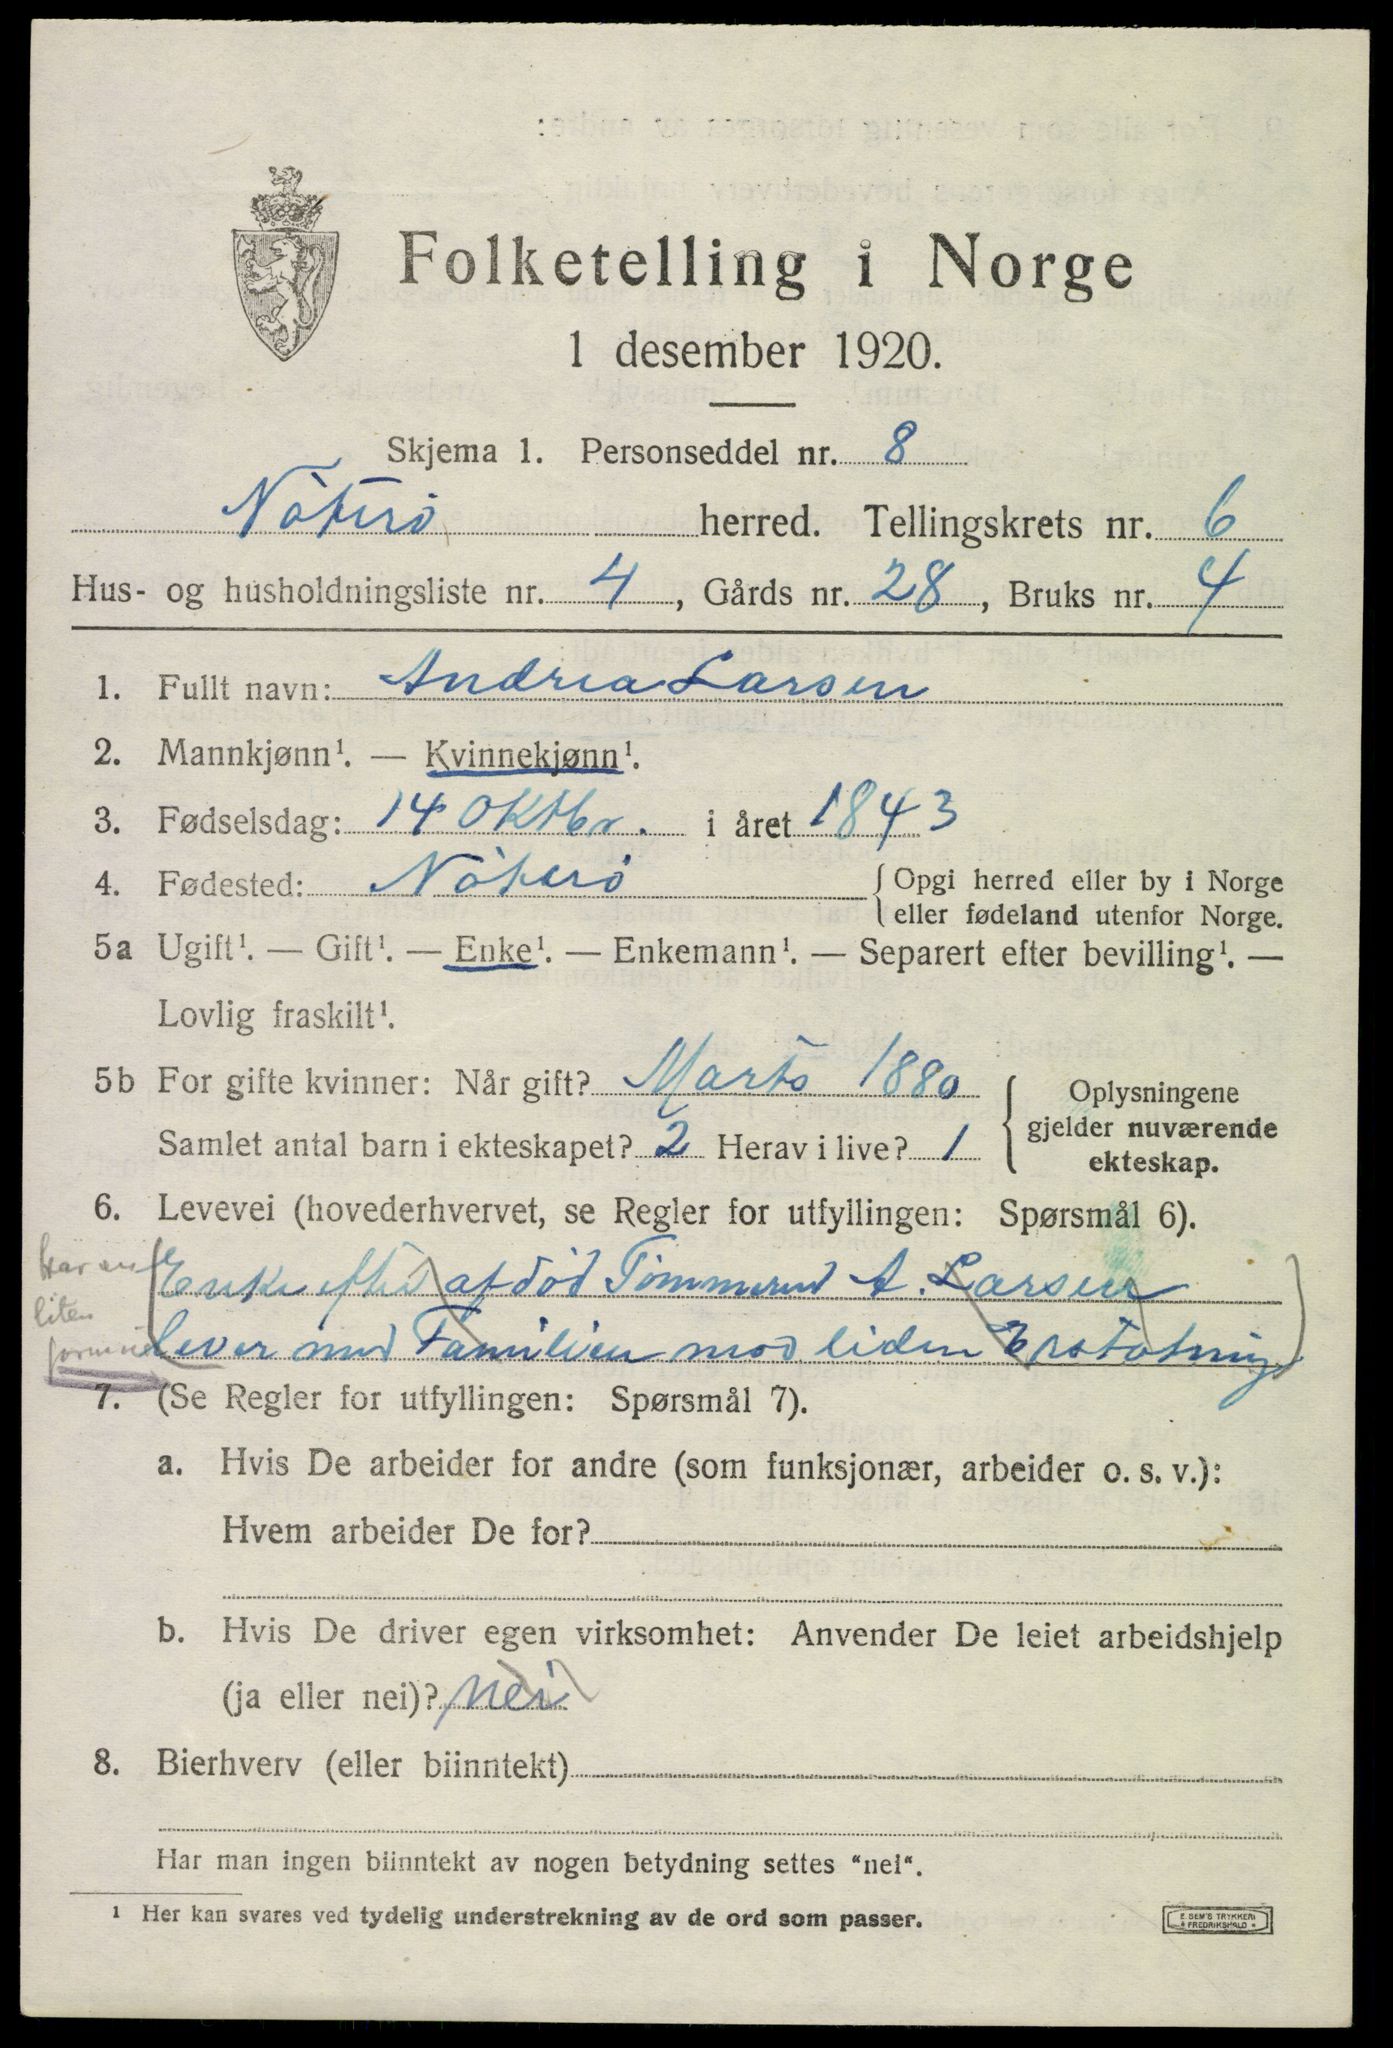 Folketelling i Norge
1 desember 1920.
Skjema 1. Personseddel nr. 8
Nöterö herred. Tellingskrets nr. 6
Hus- og husholdningsliste nr. 4, Gårds nr. 28, Bruks nr. 4
1. Fullt navn: Andrea Larsen
2. Mannkjønn¹. — Kvinnekjønn¹.
3. Fødselsdag: 14 Oktbr. i året 1843
4. Fødested: Nöterö {Opgi herred eller by i Norge
eller fødeland utenfor Norge.
5a Ugift¹. — Gift¹. — Enke¹. — Enkemann¹. — Separert efter bevilling¹. —
Lovlig fraskilt¹.
5b For gifte kvinner: Når gift? Marts 1880
Samlet antal barn i ekteskapet? 2 Herav i live? 1
{Oplysningene
gjelder nuværende
ekteskap.
6. Levevei (hovederhvervet, se Regler for utfyllingen: Spørsmål 6).
Har en
liten
(Enke efter afdöd Tömmermd A. Larsen
lever med Familien mod liden Erstatning)
7. (Se Regler for utfyllingen: Spørsmål 7).
a. Hvis De arbeider for andre (som funksjonær, arbeider o. s. v.):
Hvem arbeider De for?
b. Hvis De driver egen virksomhet: Anvender De leiet arbeidshjelp
(ja eller nei)? nei
8. Bierhverv (eller biinntekt)
Har man ingen biinntekt av nogen betydning settes "nei".
¹ Her kan svares ved tydelig understrekning av de ord som passer.
E. SEM'S TRYKKERI
FREDRIKSHALD